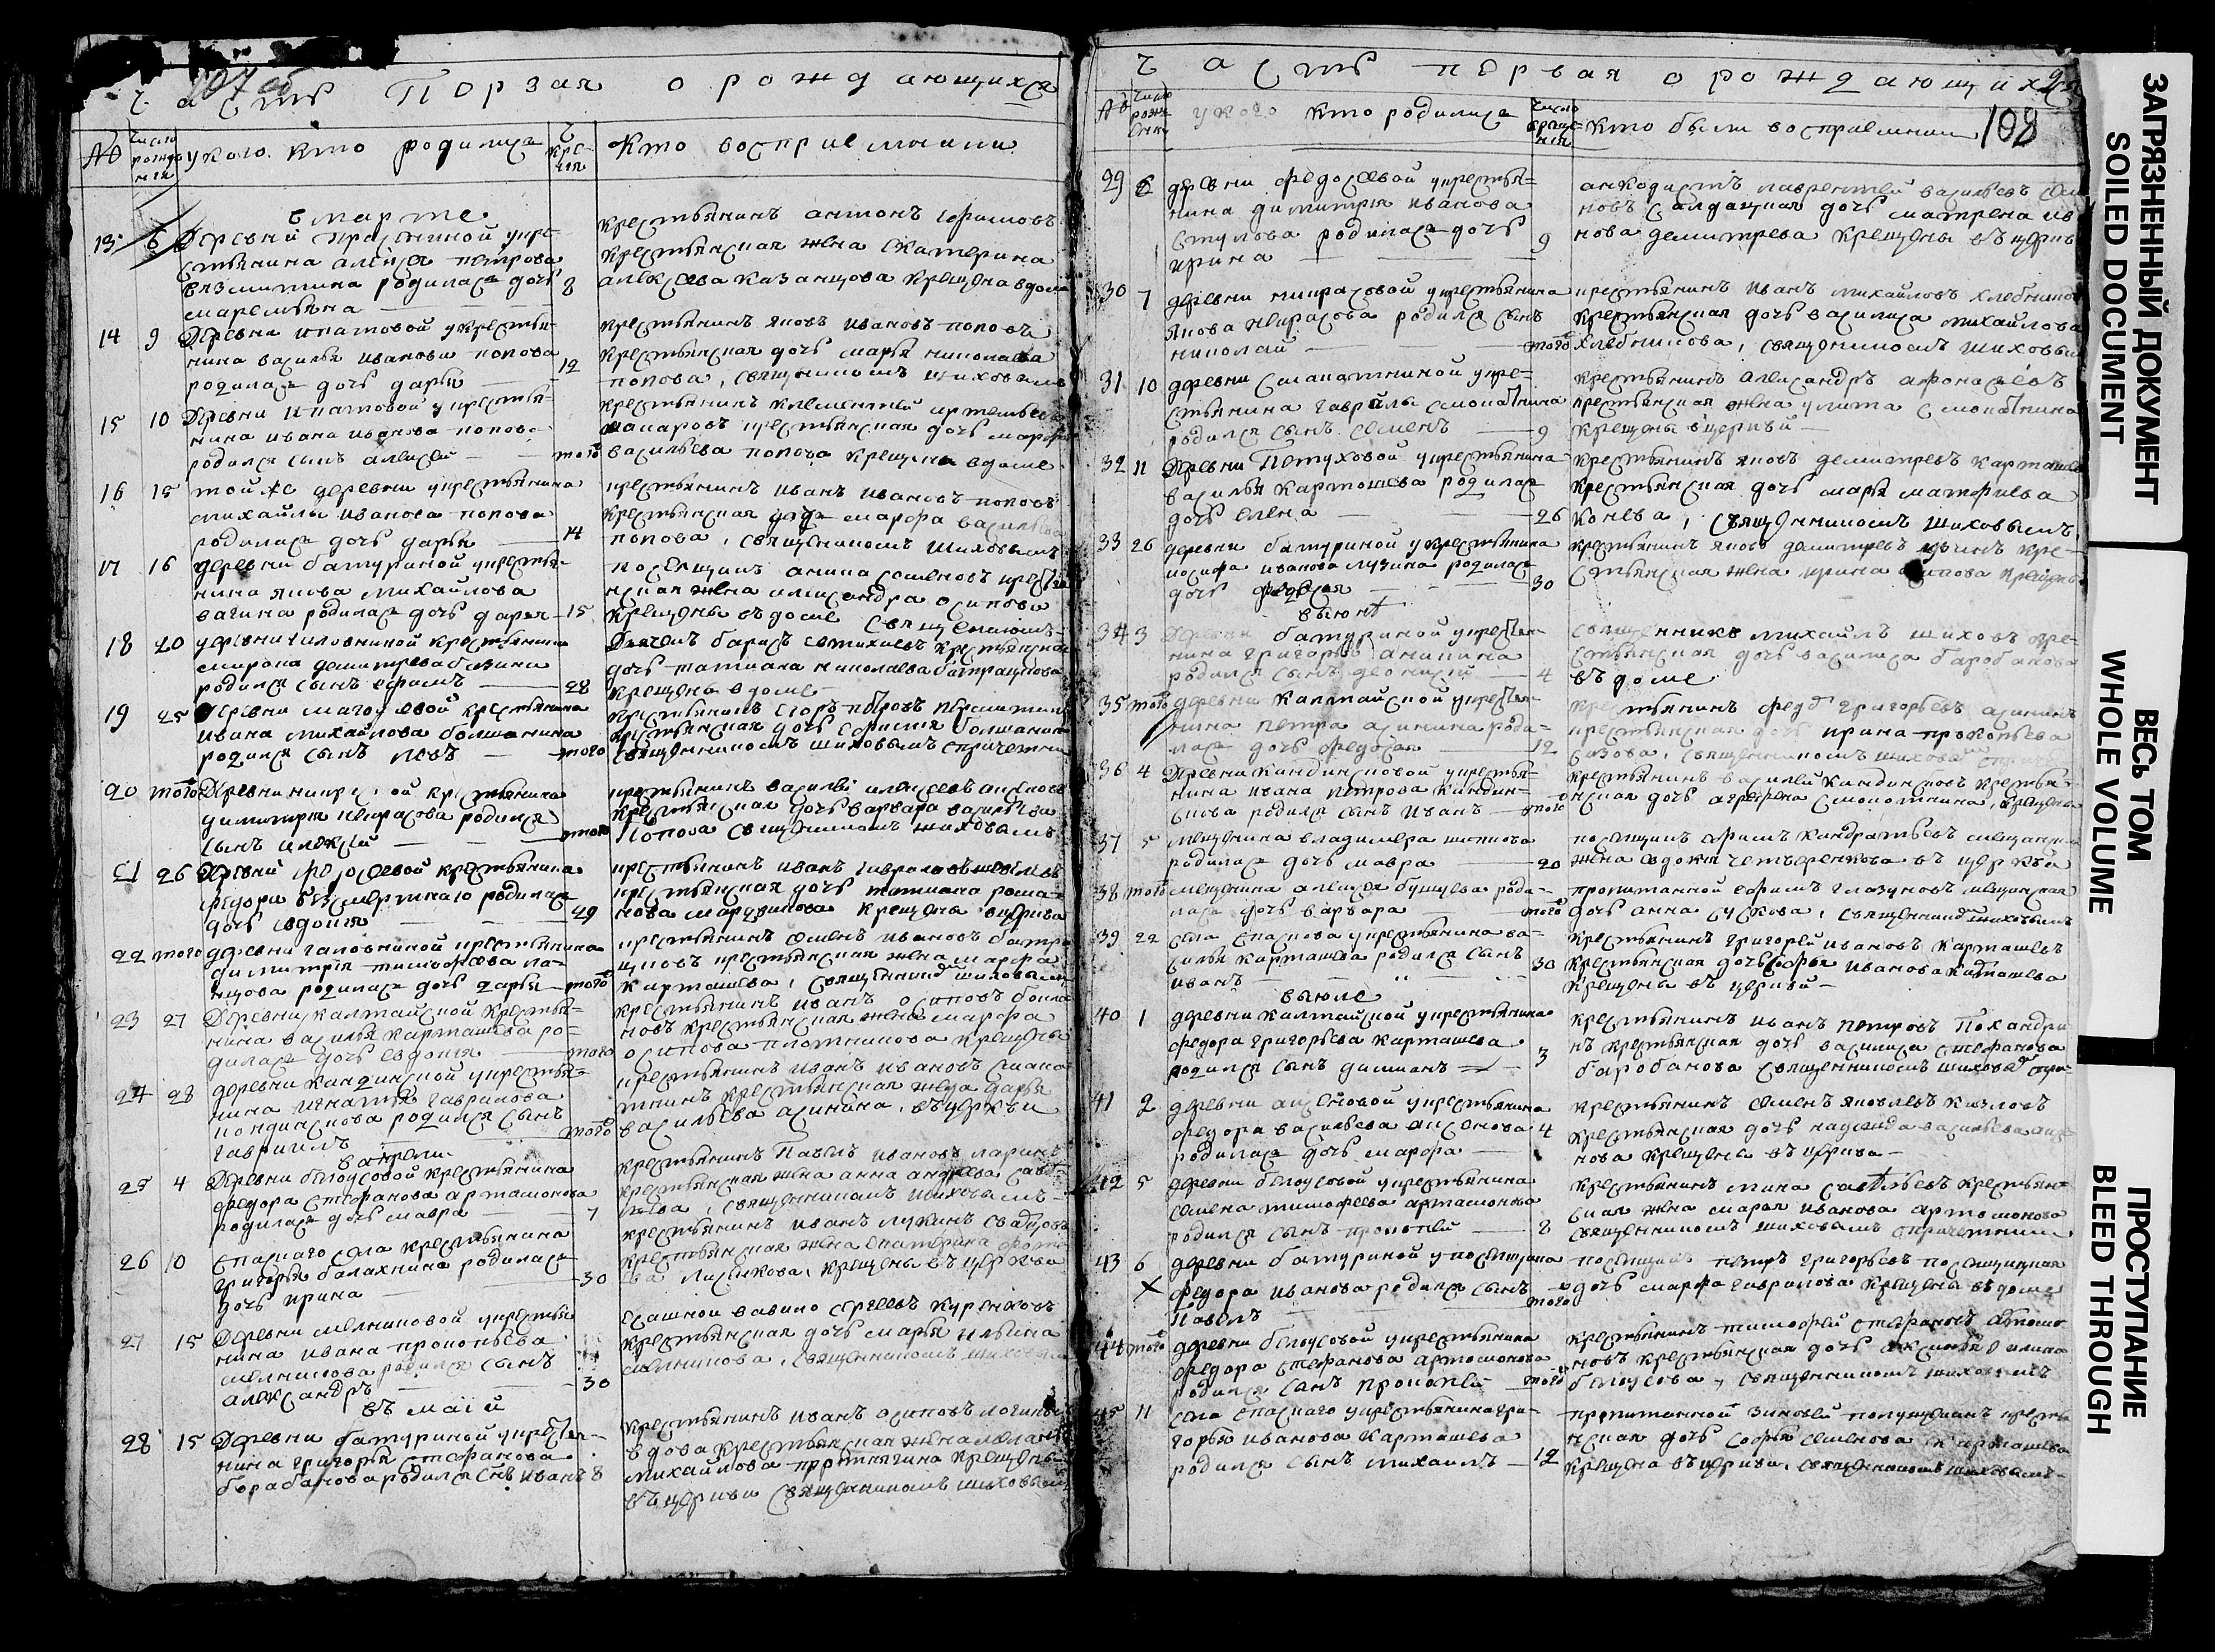 107 об
Часть Перзая о рождающихся
№ число рожде ния у кого кто родился ч кре ния Кто восприемники
в марте
13 6 Деревни упре
стьянина алексея петрова
вяземитина родилася дочь 8
маремьяна
крестьянинъ антонъ ефимовъ
крестьянская жена Екатерина
алексеева казанцова крещена в доме
14 9 Деревни ипатовой укрестья
нина василья иванова попова 12
родилася дочь дарья
крестьянинъ яковъ ивановъ поповъ
крестьянская дочь марья николаева
попова, священникомъ шиховымъ
15 10 Деревни ипатовой укрестья
нина ивана иванова попова
родился сынъ алексей того
крестьянинъ климентей артемьевъ
макаровъ крестьянская дочь марфа
васильева попова крещены в доме
16 15 той же деревни укрестьянина
михайлы иванова попова
родилася дочь дарья 14
крестьянинъ иванъ ивановъ поповъ
крестьянская марфа васильева
попова, священникомъ шиховымъ
17 16 деревни батуриной укрестья
нина якова михайлова
вагина родилася дочь дарья 15
поселщикъ аника семеновъ крестья
нская жена александра осипова
крещены въ доме священникомъ
18 20 деревни головниной крестьянина
мирона демитрева бабина
родился сынъ ефимъ 28
Дьячекъ барисъ евтихиевъ крестьянская
дочь татиана николаева батранцова
крещены в доме
19 25 деревни крестьянина
ивана михайлова болшанина
родился сынъ левъ того
крестьянинъ егоръ петровъ
крестьянская дочь софия болшанина
священникомъ шиховымъ спричетни
20 того Деревни крестьянина
димитрия некрасова родился
сынъ алексей того
крестьянинъ василей алексеевъ аксеновъ
крестьянская дочь варвара васильева
Попова священникомъ шиховымъ
21 26 Деревни федосеевой крестьянина
федора безсмертнаго родилася
дочь евдокия 29
крестьянинъ иванъ гавриловъ
крестьянская дочь татиана рома
нова крещены вцеркви
22 того деревни галовниной крестьянина
димитрия тимофеева ка
нцова родилася дочь дарья того
крестьянинъ семенъ ивановъ батра
нцовъ крестьянская жена марфа
карташева, священникомъ шиховымъ
23 27 Деревни калтайской крестья
нина василья карташева ро
дилася дочь евдокия того
крестьянинъ иванъ осиповъ
новъ крестьянская жена марфа
осипова плотникова крещены
24 28 деревни кандинской укрестья
нина игнатия гаврилова
кондинскова родился сынъ
гаврилъ того
крестьянинъ иванъ ивановъ смака
тнинъ крестьянская жена дарья
васильева аксинина, въ церкви
в апрели
25 4 Деревни белоусовой крестьянина
федора стефанова артамонова
родилася дочь мавра 7
крестьянинъ Павелъ ивановъ ларинъ
крестьянская жена анна андреева саве
льева, священникомъ шиховымъ
26 10 спаскаго села крестьянина
григорья балахнина родилася
дочь ирина 30
крестьянинъ иванъ лукинъ
крестьянская жена екатерина
крещены въ церкви
27 15 Деревни мелниковой укрестья
нина ивана прокопьева
мелникова родился сынъ
александръ 30
вавило сергеевъ куренковъ
крестьянская дочь марья ильина
мелникова, священникомъ шиховымъ
въ маiи
28 15 Деревни батуриной укрестья
нина григорья стефанова
барабанова родился снъ иванъ 8
крестьянинъ иванъ осиповъ логиновъ
вдова крестьянская жена меланья
михайлова крещены
въ церкви священникомъ шиховымъ
Часть первая о рождающихся
108
№ число рожд ения у кого кто родился число креще ния кто были восприемники
29 6 деревни федосеевой укрестья
нина димитрия иванова
стулова родилася дочь 9
ирина
лаврентей васильевъ
новъ салдацкая дочь матрена ива
нова демитрева крещены въ церкви
30 7 деревни некрасовой укрестьянина
якова некрасова родился сынъ
николай того
крестьянинъ иванъ михайловъ хлебников
крестьянская дочь василиса михайлова
хлебникова, священникомъ шиховым
31 10 деревни смакатниной укре
стьянина гаврилы смокатнина
родился сынъ семенъ 9
крестьянинъ александръ афонасьевъ
крестьянская жена улита смокатнина
крещены вцеркви
32 11 Деревни Петуховой укрестьянина
василья карташева родилас
дочь елена 26
крестьянинъ яковъ демитревъ карташев
крестьянская дочь марья матфиева
конева, священникомъ шиховымъ
33 26 деревни батуриной укрестьянина
иосифа иванова лузина родилася
дочь федосия 30
крестьянинъ яковъ демитревъ кре
стьянская жена ирина осипова крещены
в июнѣ
34 3 Деревни батуриной укрестья
нина григорья аникина
родился сынъ деонисий 4
священникъ михаилъ шиховъ кре
стьянская дочь василиса барабанова
въ доме
35 того деревни калтайской укрестья
нина петра аксинина роди
лася дочь федосия 12
крестьянинъ федоръ григорьевъ аксининъ
крестьянская дочь ирина прокопьева
сизова, священникомъ шиховы
36 4 Деревни кандинсковой укрестья
нина ивана петрова кандин
скова родился сынъ иванъ того
крестьянинъ василей кандинсковъ крестья
нская дочь агрефена смокотнина, крещены
37 5 мещенина владимера шотхова
родилася дочь мавра 20
поселщикъ ефимъ кандратьевъ мещанска
жена евдокия въ церкви
38 того мещенина алексея бушуева роди
лася дочь варвара того
пропитанной ефимъ глазуновъ мещанская
дочь анна сускова, священникомъ шиховымъ
39 22 села спаскова укрестьянина ва
силья карташева родился сынъ 30
иванъ
крестьянинъ григорей ивановъ карташевъ
крестьянская дочь софья иванова карташева
крещены въ церкви
в июле
40 1 деревни калтайской укрестьянина
федора григорьева карташева
родился сынъ дамианъ 3
крестьянинъ иванъ петровъ Поханри
нъ крестьянская дочь василиса стефанова
баробанова священникомъ шиховы
41 2 деревни аксеновой укрестьянина
федора васильева аксенова 4
родилася дочь марфа
крестьянинъ семенъ яковлевъ козловъ
крестьянская дочь надежда васильева аксе
нова крещены въ церкви
42 5 деревни белоусовой укрестьянина
семена тимофеева артамонова
родился сынъ прокопей 8
крестьянинъ мина савельевъ крестьян
ская жена марья иванова артамонова
священникомъ шиховымъ спричетники
43 6 деревни батуриной упоселщика
федора иванова родился сынъ
Павелъ того
поселщикъ петръ григорьевъ поселщицкая
дочь марфа гаврилова крещены въ доме
44 того деревни белоусовой укрестьянина
федора стефанова артамонова
родился сынъ прокопей того
крестьянинъ тимофей стефановъ артамо
новъ крестьянская дочь аксинья филипа
белоусова, священникомъ шиховымъ
45 11 села спаскаго укрестьянина гри
горья иванова карташева
родился сынъ михаилъ 12
пропитанной зиновей крестья
нская дочь софья семенова карташева
крещены въ церкви, священникомъ шиховымъ
ЗАГРЯЗНЕННЫЙ ДОКУМЕНТ
SOILED DOCUMENT
ВЕСЬ ТОМ
WHOLE VOLUME
ПРОСТУПАНИЕ
BLEED THROUGH